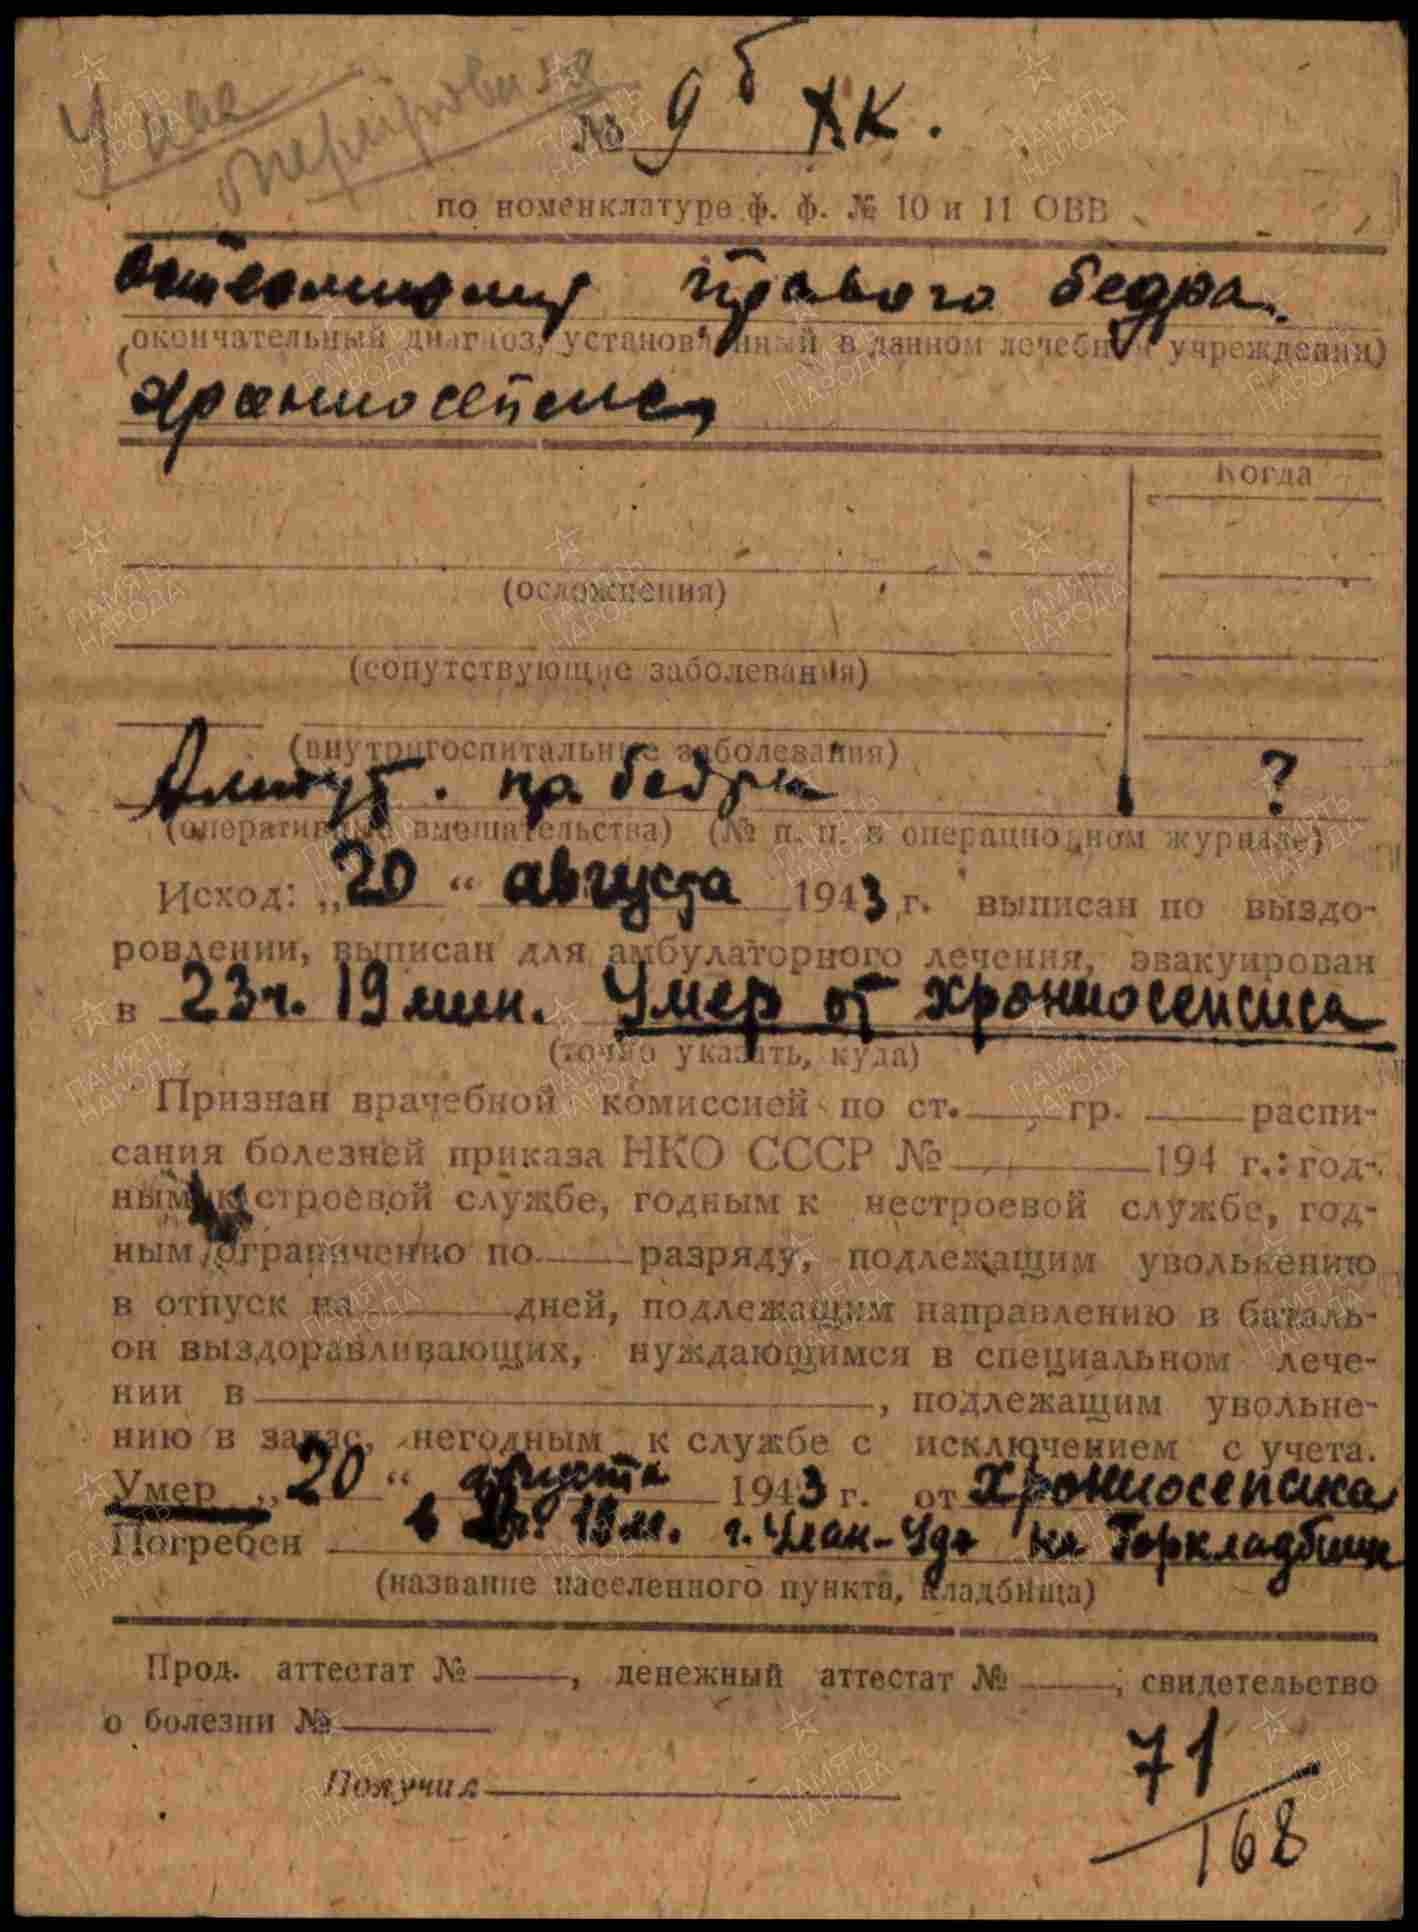 У нас
оперировался
№ 9б ХК.
по номенклатуре ф. ф. № 10 и 11 ОВВ
остеомиэлит правого бедра.
(окончательный диагноз, установленный в данном лечебном учреждении)
хрониосепсис
Когда
(осложнения)
(сопутствующие заболевания)
(внутригоспитальные заболевания)
Ампут. пр. бедра ?
(оперативные вмешательства) (№ п. п. в операционном журнале)
Исход: „20“ августа 1943 г. выписан по выздо-
ровлении, выписан для амбулаторного лечения, эвакуирован
в 23ч. 19 мин. Умер от хрониосепсиса
(точно указать, куда)
Признан врачебной комиссией по ст. гр. распи-
сания болезней приказа НКО СССР № 194 г.: год-
ным к строевой службе, годным к нестроевой службе, год-
ным ограниченно по разряду, подлежащим увольнению
в отпуск на дней, подлежащим направлению в баталь-
он выздоравливающих, нуждающимся в специальном лече-
нии в , подлежащим увольне-
нию в запас, негодным к службе с исключением с учета.
Умер „20“ августа 1943 г. от хрониосепсиса
в 23ч. 19 м. г. Улан-Удэ на Горкладбище
Погребен
(название населенного пункта, кладбища)
Прод. аттестат № , денежный аттестат № ; свидетельство
о болезни №
Получил
71
168
ПАМЯТЬ НАРОДА